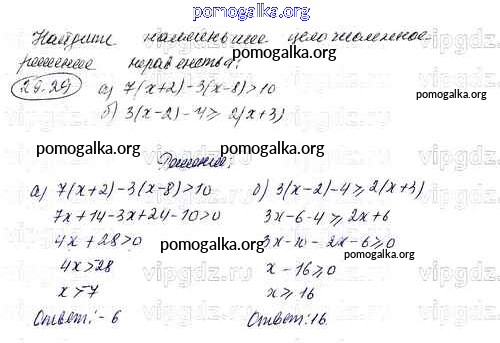 pomogalka.org
Найдите наименьшее целочисленное
решение неравенства:
29.29 а) 7(x+2)-3(x-8)>10
б) 3(x-2)-4≥2(x+3)
pomogalka.org
Решение:
pomogalka.org
pomogalka.org
а) 7(x+2)-3(x-8)>10
б) 3(x-2)-4≥2(x+3)
7x+14-3x+24-10>0
3x-6-4≥2x+6
4x+28>0
3x-10-2x-6≥0
pomogalka.org
4x>28
x-16≥0
x>7
x≥16
pomogalka.org
Ответ: -6
Ответ: 16
vipgdz.ru